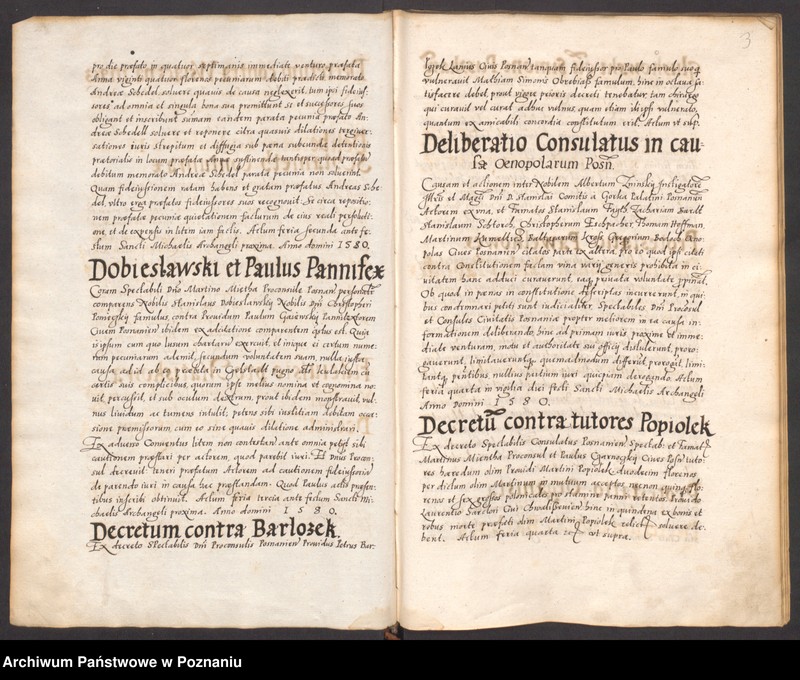 pro die præfato in quatuor septimanis immediate venturo, præfata
Anna viginti quatuor florenos pecuniarum debiti prædicti memorato
Andreæ Schedel soluere, quauis de causa neglexerit, tum ipsi fideius-
sores ad omnia et singula bona sua promittunt se et successores suos
obligant et inscribunt summam eandem parata pecunia præfato An-
dreæ Schedell soluere et reponere citra quasuis dilationes tergiuer-
sationes iuris strepitum et diffugia sub pæna subeundæ detentionis
prætorialis in locum præfatæ Annæ sustinendæ tantisper, quoad præfatum
debitum memorato Andreæ Schedel parata pecunia non soluerint.
Quam fideiussionem ratam habens et gratam præfatus Andreas Sche-
del, vltro erga præfatos fideiussores suos recognouit. Se circa repositio-
nem præfatæ pecuniæ quietationem facturum de eius reali persoluti-
one, et de expensis in litem iam factis. Actum feria secunda ante fe-
stum Sancti Michaelis Archangeli proxima. Anno domini 1580.
Dobiesławski et Paulus Pannifex
Coram Spectabili Dño Martino Mietha Proconsule Posnanien personaliter
comparens Nobilis Stanislaus Dobiesławsky Nobilis Dñi Christopheri
famulus, contra Prouidum Paulum Gaiewsky Pannitextorem
Ciuem Posnanien ibidem ex aditatione comparentem questus est. Quia
is ipsum cum quo lusum chartarum exercuit, et inique ei certum nume-
rum pecuniarum ademit, secundum voluntatem suam, nulla iusta
causa ad id abs se præbita in pugno seu cum
certis suis complicibus, quorum ipse melius nomina et cognomina no-
uit percussit, et sub oculum dextrum, prout ibidem monstrauit vul-
nus liuidum ac tumens intulit, petens sibi iustitiam debitam occa-
sione præmissorum cum eo sine quauis dilatione administrari.
Ex aduerso Conuentus litem non contestando ante omnia petijt sibi
cautionem præstari per actorem, quod parebit iuri. Et Dñus Procon-
sul decreuit teneri præfatum Actorem ad cautionem fideiussoriam
de parendo iuri in causa hac præstandam. Quod Paulus actis præsen-
tibus inscribi obtinuit. Actum feria tercia ante festum Sancti Mi-
chaelis Archangeli proxima. Anno domini 1580.
Decretum contra Barłożek.
Ex decreto Spectabilis Dñi Proconsulis Posnanien Prouidus Petrus Bar-
3
łożek Lanius Ciuis Posnanien tanquam fideiussor pro Paulo famulo suo
vulnerauit Mathiam Simonis famulum, hinc in octaua sa-
tisfacere debet, prout vigore prioris decreti tenebatur, tam chirurgo
qui curauit vel curat adhuc vulnus, quam etiam ipsi vulnerato,
quantum ex amicabili concordia constitutum erit. Actum vt supra.
Deliberatio Consulatus in cau-
sa Oenopolarum Posñ.
Causam et actionem inter Nobilem Albertum Zninsky Instigatorem
Illris et Magci Dñi D. Stanislai Comitis a Gorka Palatini Posnanien
Actorem ex vna, et Famatos Stanislaum Fayth Zachariam Bardll
Stanislaum Schtorch, Christopherum Eschpacher, Thomam Hoffman,
Martinum Balthasarum Krosk Gregorium Oeno-
polas Ciues Posnanien citatos parte ex altera, pro eo quod ipsi citati
contra Constitutionem factam vina varij generis prohibita in ci-
uitatem hanc adduci curauerunt, eaque priuata voluntate
Ob quod in pænas in constitutione descriptas incurrerunt, in qui-
bus condemnari petiti sunt iudicialiter, Spectabiles Dñi Proconsul
et Consules Ciuitatis Posnaniæ propter meliorem in ea causa in-
formationem deliberando, hinc ad primam iuris proxime et imme-
diate venturam, motu et authoritate sui officij distulerunt, proro-
gauerunt, limitaueruntque, quemadmodum differunt, prorogant, limi-
tantque, præsentibus nullius partium iuri quicquam derogando. Actum
feria quarta in vigilia diei festi Sancti Michaelis Archangeli
Anno Domini 1580.
Decretũ contra tutores Popiołek
Ex decreto Spectabilis Consulatus Posnanien, Spectab: et Famat:
Martinus Mientha Proconsul et Paulus Czarnosky Ciues Posñ tuto-
res hæredum olim Prouidi Martini Popiołek duodecim florenos
per dictum olim Martinum in mutuum acceptos necnon quinque flo-
renos et sex grossos polonicales pro stamine panni retentos Prouido
Laurentio Sartori Ciui hinc in quindena ex bonis et
rebus morte præfati olim Martini Popiołek relictis soluere de-
bent. Actum feria quarta etc vt supra.
Archiwum Państwowe w Poznaniu